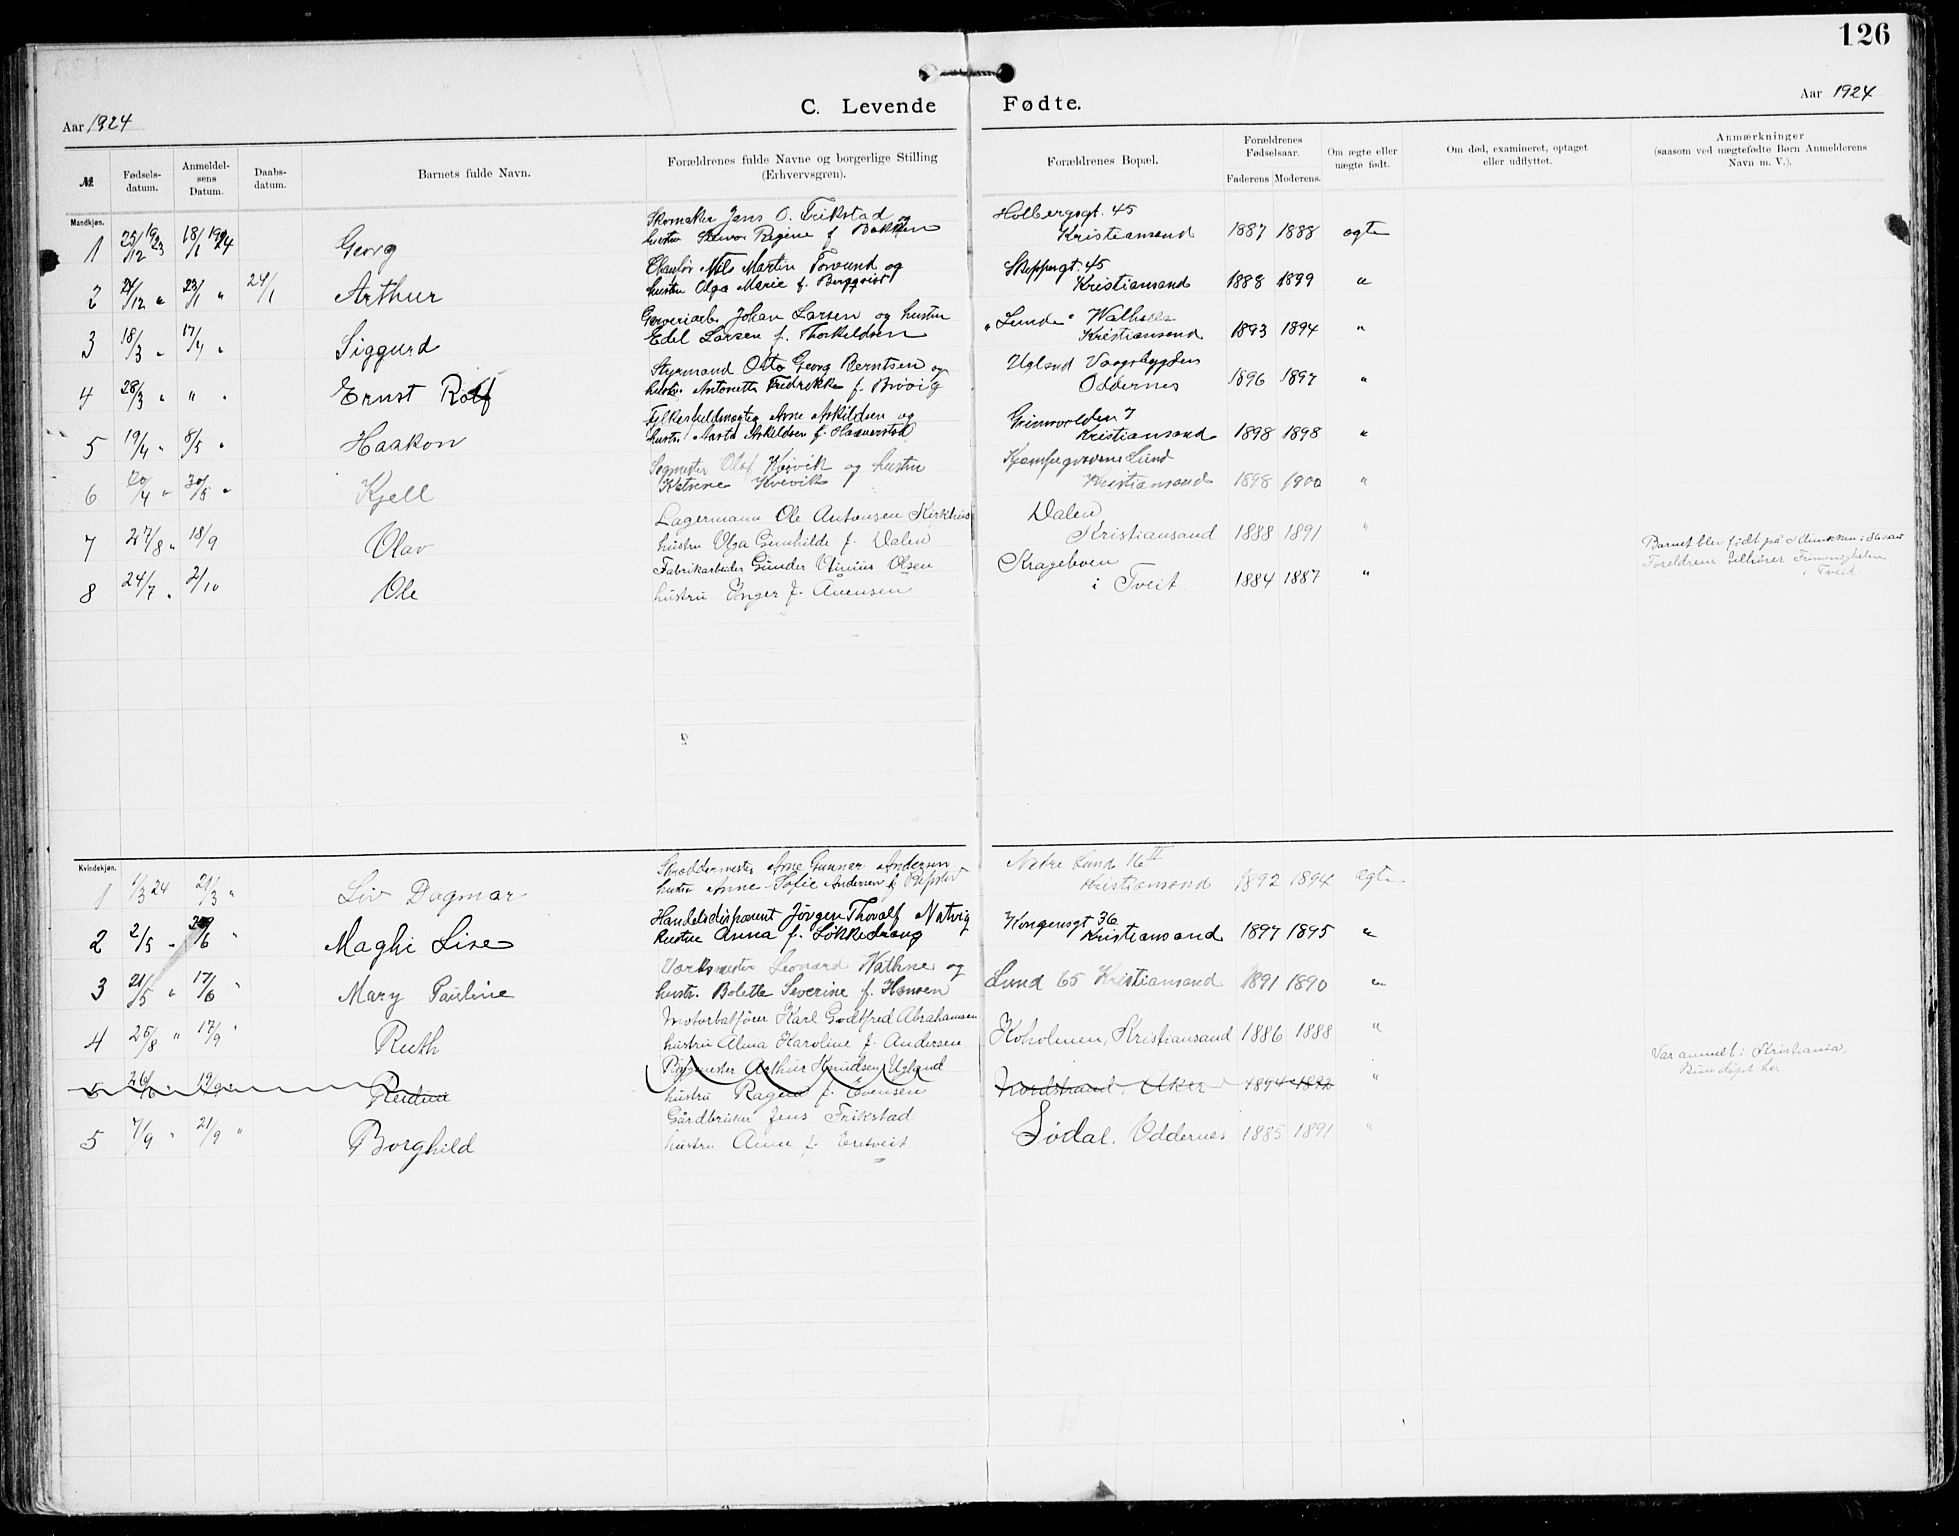 126
Aar 1924
C. Levende Fødte.
Aar 1924
№
Fødsels-datum.
Anmeldel-sens Datum.
Daabs-datum.
Barnets fulde Navn.
Forældrenes fulde Navne og borgerlige Stilling
(Erhvervsgren).
Forældrenes Bopæl.
Forældrenes Fødselsaar.
Faderens Moderens.
Om ægte eller uægte født.
Om død, examineret, optaget
eller udflyttet.
Anmærkninger
(saasom ved uægtefødte Børn Anmelderens
Navn m. V.).
Mandkjøn.
Skomaker Jens O. Frikstad og Holbergsgt. 45
1 25/12 1923 18/1 1924 Georg hustru Regine f Bakken Kristiansand 1887 1888 ægte
Nils Martin og Skippergt. 45
2 24/12 " 23/1 " 24/1 Arthur hustru Olga Marie f. Bergqvist Kristiansand 1888 1899 "
Garveriarb. Johan Larsen og hustru "Lunde" Walhalla
3 18/3 " 17/4 " Siggurd Edel Larsen f. Thorkildsen Kristiansand 1893 1894 "
Styrmand Otto Georg Berntsen og Ugland Vaagsbygden
4 28/3 " " " Ernst Rolf hustru Antonette Fredrikke f. Brövig Oddernes 1896 1897 "
Arne Askildsen og Grimvolden 7
5 19/4 " 8/5 " Haakon hustr. Aasta Askildsen f. Kristiansand 1898 1898 "
Olaf Kvivik og hustru Lund
6 20/4 " 30/5 " Kjell Kvevik Kristiansand 1898 1900 "
Lagermann Ole Antonsen Kirkhus Dalen
7 27/8 " 18/9 Olav hustru Olga Gunhilde f. Dalen Kristiansand 1888 1891 "
Fabrikarbeider Gunder Olsen Krageboen
8 24/7 " 2/10 Ole hustru Inger f. i Tveit 1884 1887 "
Barnet blev født på
Foreldrene tilhører
i Tveit.
Kvindekjøn.
Skræddermester Arne Gunnar Andersen Nedre Lund 16 II
1 1/3 24 21/3 " Liv Dagmar hustru Anne Sofie Andersen f. Kristiansand 1892 1894 ægte
Handelsdisponent Jörgen Thorolf Natvig Kongensgt 36
2 2/5 " /6 " Maghi Lise hustru Anna f. Løkkedrang Kristiansand 1897 1895 "
Verksmester Leonard Nathne og
3 21/5 " 17/6 " Mary Pauline hustr. Bolette Severine f. Hansen Lund 65 Kristiansand 1891 1890 "
Motorbatfører Karl Godtfred Abrahamsen
4 25/8 " 17/9 " Ruth hustru Alma Karoline f. Andersen Koholmen, Kristiansand 1886 1888 "
Arthur Knudsen Ugland
5 26/6 " 19/9 " Reidun hustru Ragna f. Evensen Nordstrand, Aker 1894 "
Var anmelt i Kristiania,
Kun døpt her
Gårdbruker Jens Frikstad
5 7/9 " 21/9 " Borghild hustru Anna f. Eretveit Sødal. Oddernes 1885 1891 "